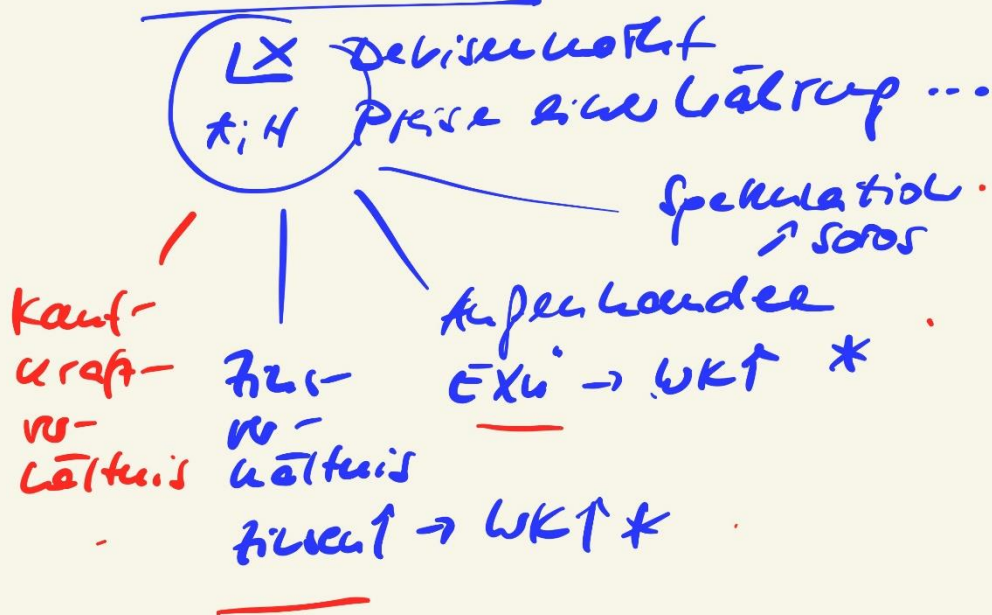 Devisenmarkt
A; N Preise einer Währung ...
Spekulation
↗ Soros
Kauf-
kraft-
ver-
hältnis
Zins-
ver-
hältnis
Zinsen↑ → WK↑ *
Außenhandel
EXü → WK↑ *